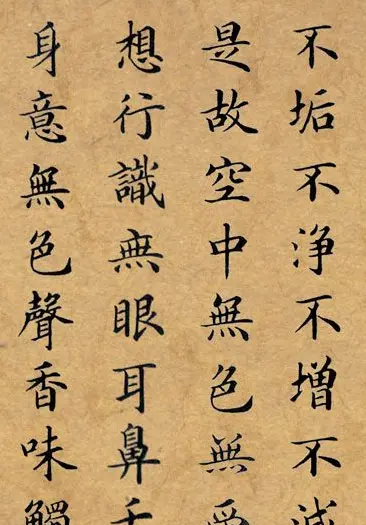 不垢不浄不增不
是故空中無色無受
想行識無眼耳鼻
身意無色聲香味觸